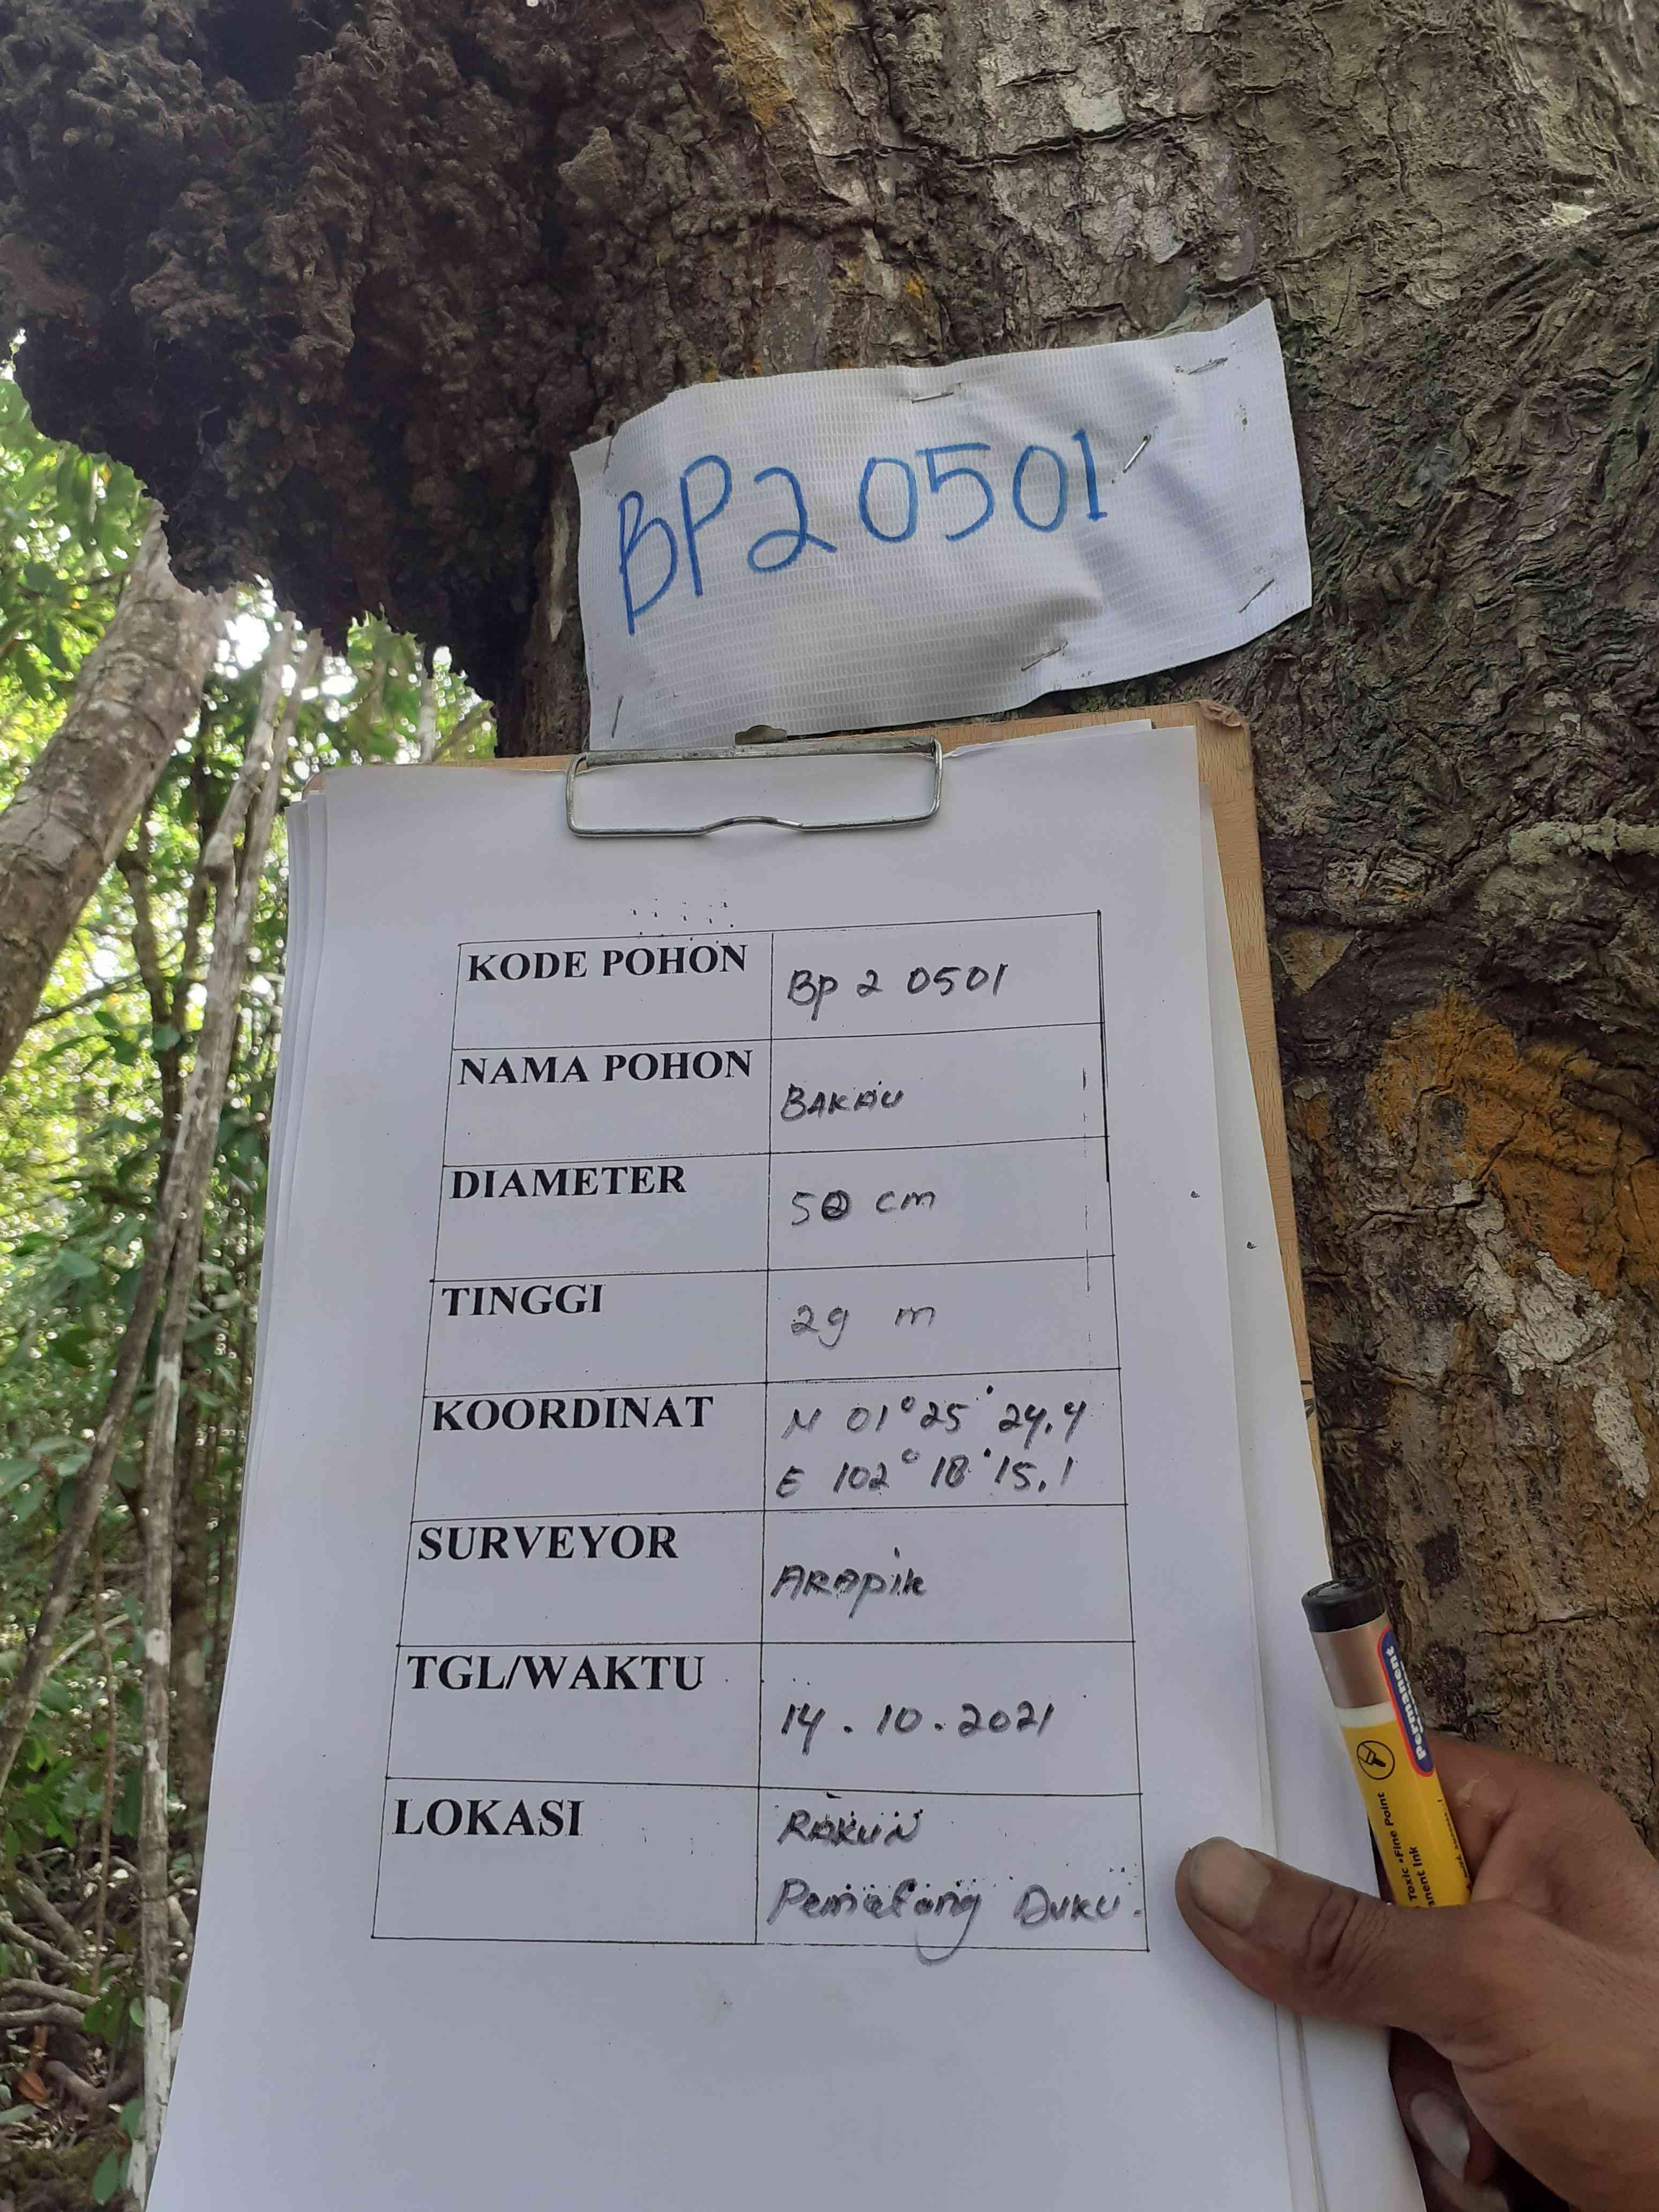 BP2 0501
KODE POHON
Bp 2 0501
NAMA POHON
BAKAU
DIAMETER
50 cm
TINGGI
29 m
KOORDINAT
N 01° 25' 24,4
E 102° 18' 15,1
SURVEYOR
ARApik
TGL/WAKTU
14 . 10 . 2021
LOKASI
Pematang Duku.
Permanent
Toxic • Fine Point